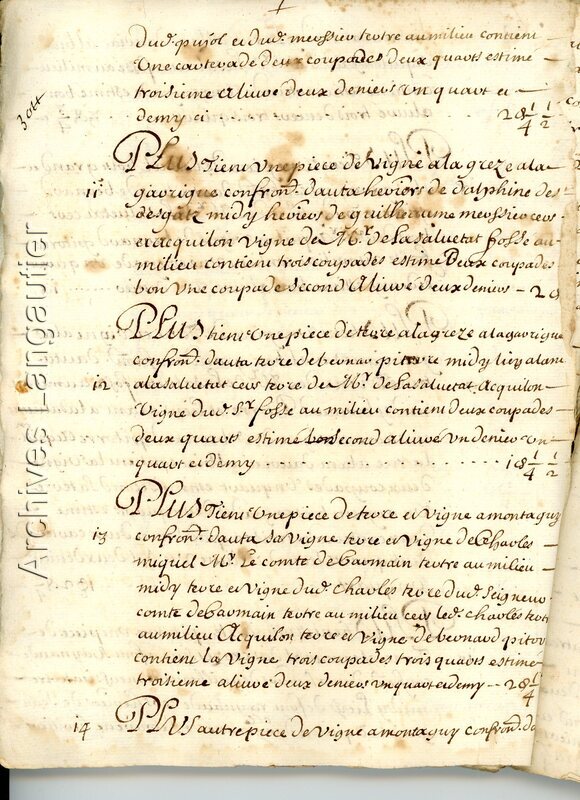 dud. pujol et dud. messier tertre au milieu contient
Une carterade deux coupades deux quarts estimé
troisieme alivré deux deniers Un quart et
demy ci 2 d 1/4 1/2
PLUS tient Une piece de vigne a la greze a la
11 gavrigue confron. d'auta heritiers de dalphine des
midy heritiers de guilheaume messier cers
et acquilon vigne de Mr. de Lasalvetat fosse au
milieu contient trois coupades estimé Deux coupades
bon Une coupade second Alivré deux deniers 2 d
PLUS tient Une piece de terre a la greze a la gavrigue
confron. d'auta terre de bernar pitorre midy
12 a la salvetat cers terre de Mr. de Lasalvetat Acquilon
Vigne dud. Sr. fosse au milieu contient deux coupades
deux quarts estimé second Alivré Un denier Un
quart et demy 1 d 1/4 1/2
PLUS tient Une piece de terre et Vigne a montaguy
13 confron. d'auta sa Vigne terre et Vigne de Charles
miquel Mr. Le comte de Carmain tertre au milieu
midy terre et Vigne dud. Charles terre dud. Seigneur
comte de Carmain tertre au milieu cers led. Charles
au milieu Acquilon terre et Vigne de bernard pitor
contient la Vigne trois coupades trois quarts estimé
troisieme alivré deux deniers Un quart et demy 2 d 1/4
14 PLUS autre piece de Vigne a montaguy confron. d
Archives Langautier